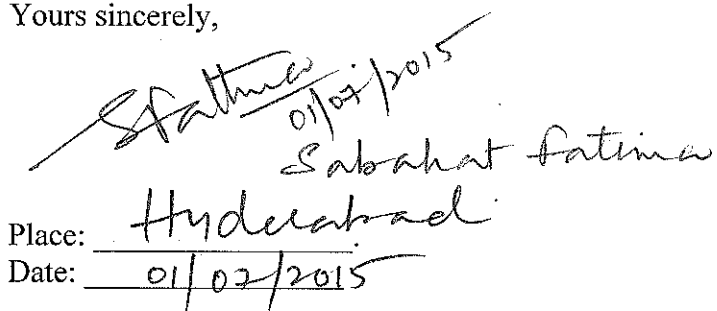 Yours sincerely,
SFathima
01/07/2015
Sabahat Fatima
Place: Hyderabad.
Date: 01/07/2015